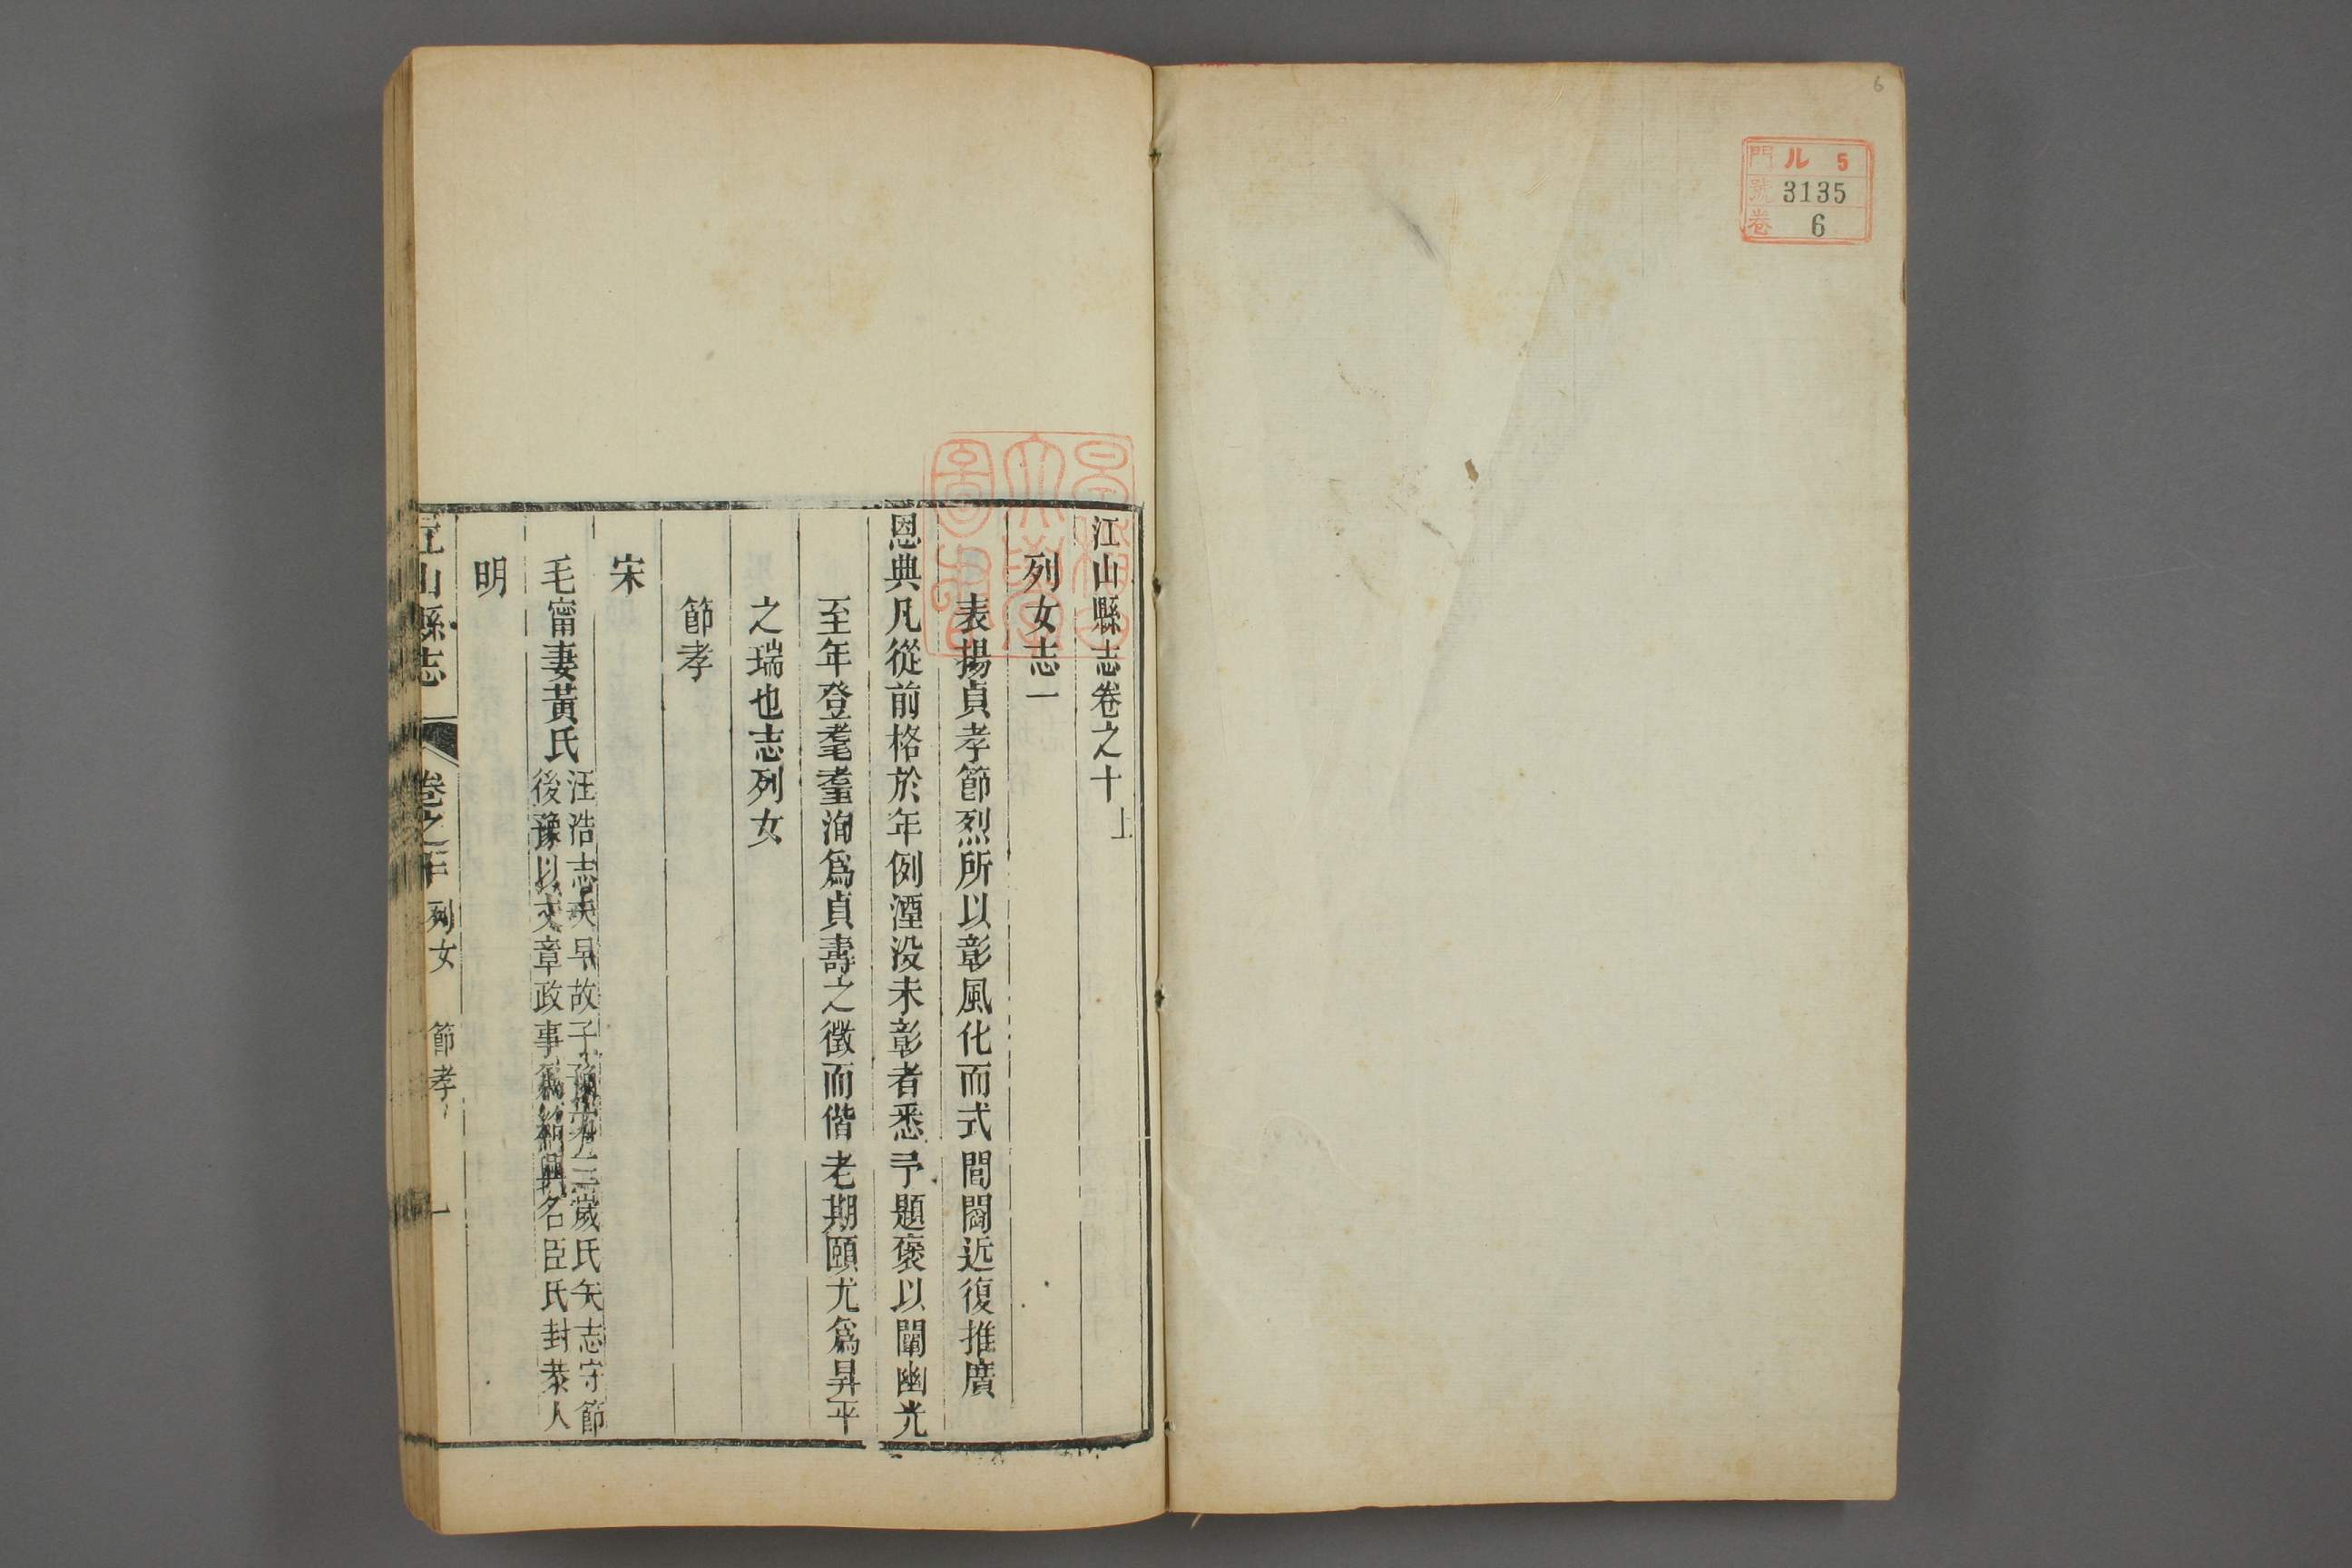 6
門 ル 5
號 3135
卷 6
江山縣志卷之十上
列女志一
表揚貞孝節烈所以彰風化而式閭閻近復推廣
恩典凡從前格於年例湮沒未彰者悉予題褒以闡幽光
至年登耄耋洵爲貞壽之徵而偕老期頤尤爲昇平
之瑞也志列女
節孝
宋
毛甯妻黃氏
汪浩志夫早故子豫 三歲氏矢志守節
後豫以文章政事爲紹興名臣氏封恭人
明
江山縣志 卷之十 列女 節孝 一
早稻田大學圖書